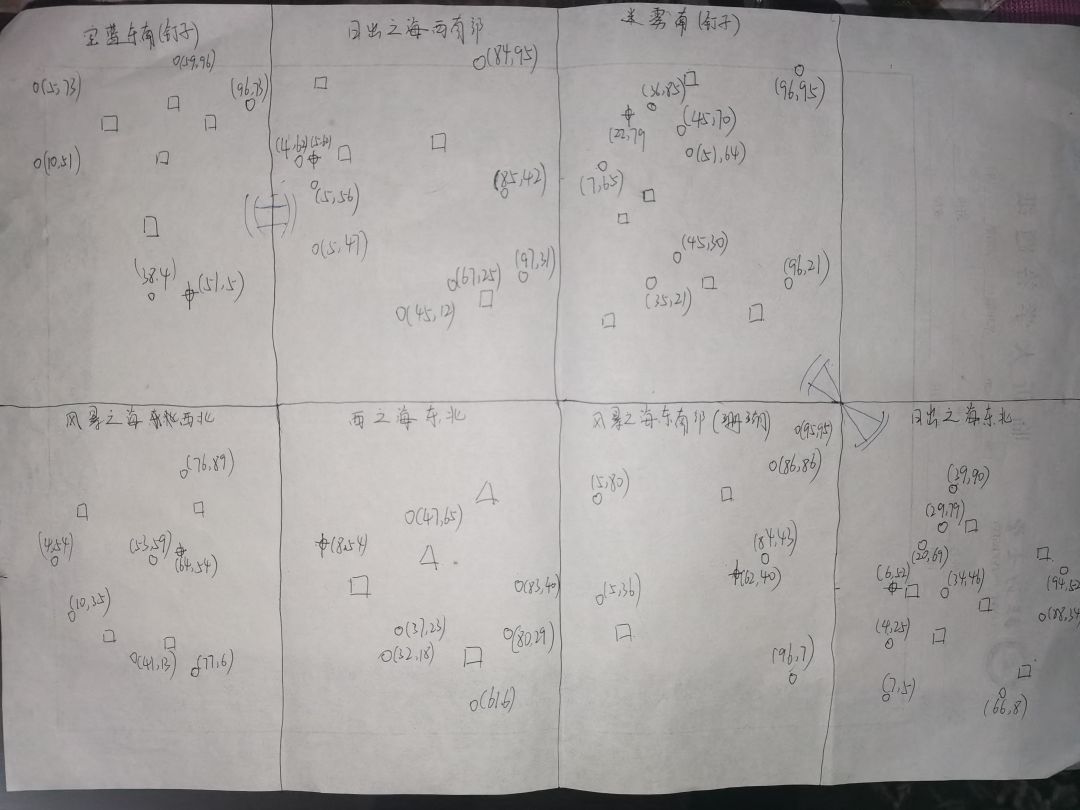 宝蓝东南(钉子)
(59,96)
(5,73)
(96,73)
(10,51)
(38.4)
(51,5)
日出之海西南部
(84,95)
(4,62)
(5,56)
(85,42)
(5,47)
(97,31)
(67,25)
(45,12)
迷雾南(钉子)
(96,95)
(36,85)
(45,70)
(22,79
(51,64)
(7,65)
(45,30)
(96,21)
(35,21)
风暴之海西北
(76,89)
(4,54)
(53,59)
(64,54)
(10,35)
(41,13)
(77,6)
西之海东北
(47,65)
(8,54)
(83,40)
(37,23)
(80,29)
(32,18)
(61,6)
风暴之海东南部(珊瑚)
(95,95)
(86,86)
(5,80)
(84,43)
(62,40)
(5,36)
(96,7)
日出之海东北
(39,90)
(29,79)
(20,69)
(6,52)
(34,46)
(94,52
(88,34
(4,25)
(7,5)
(66,8)